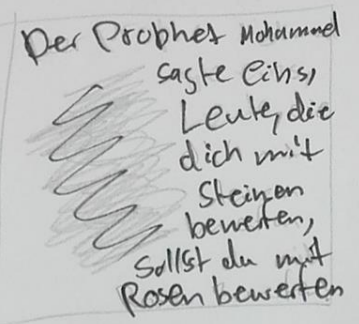 Der Prophet Mohammed
sagte eins,
Leute, die
dich mit
Steinen
bewerfen,
sollst du mit
Rosen bewerfen